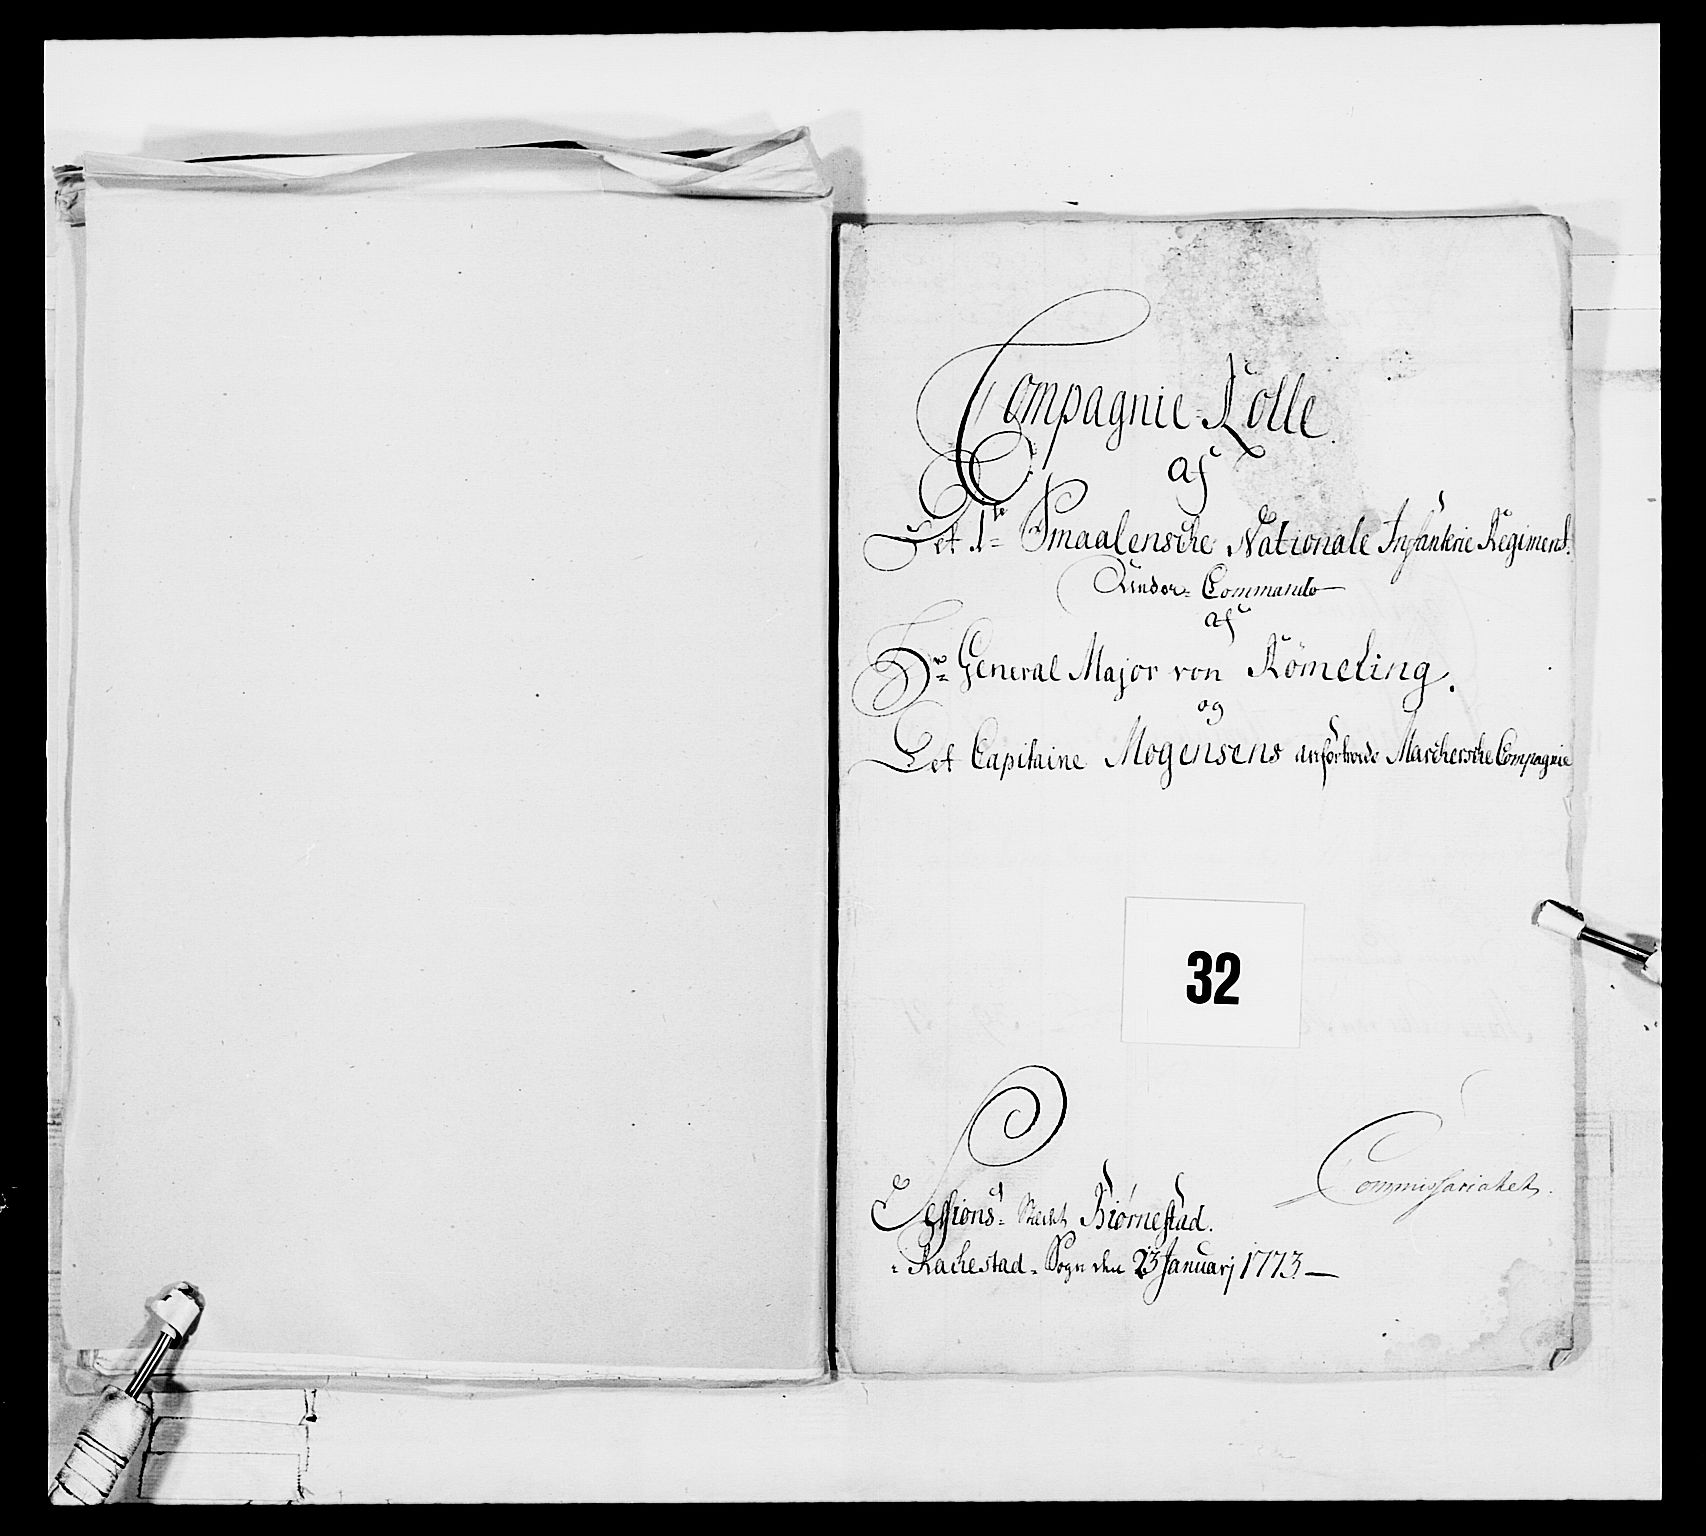 Compagnie-Rolle.
af
Det 1te Smaalensche Nationale Infanterie Regiment.
Under-Commando
af
Hr General Major von Römeling.
og
Det Capitaine Mogensens anfortroede Marchersche Compagnie
32
Commissariatet.
Sessions-Stædet Biørnestad.
Rachestad-Sogn den 23 Januarj 1773—